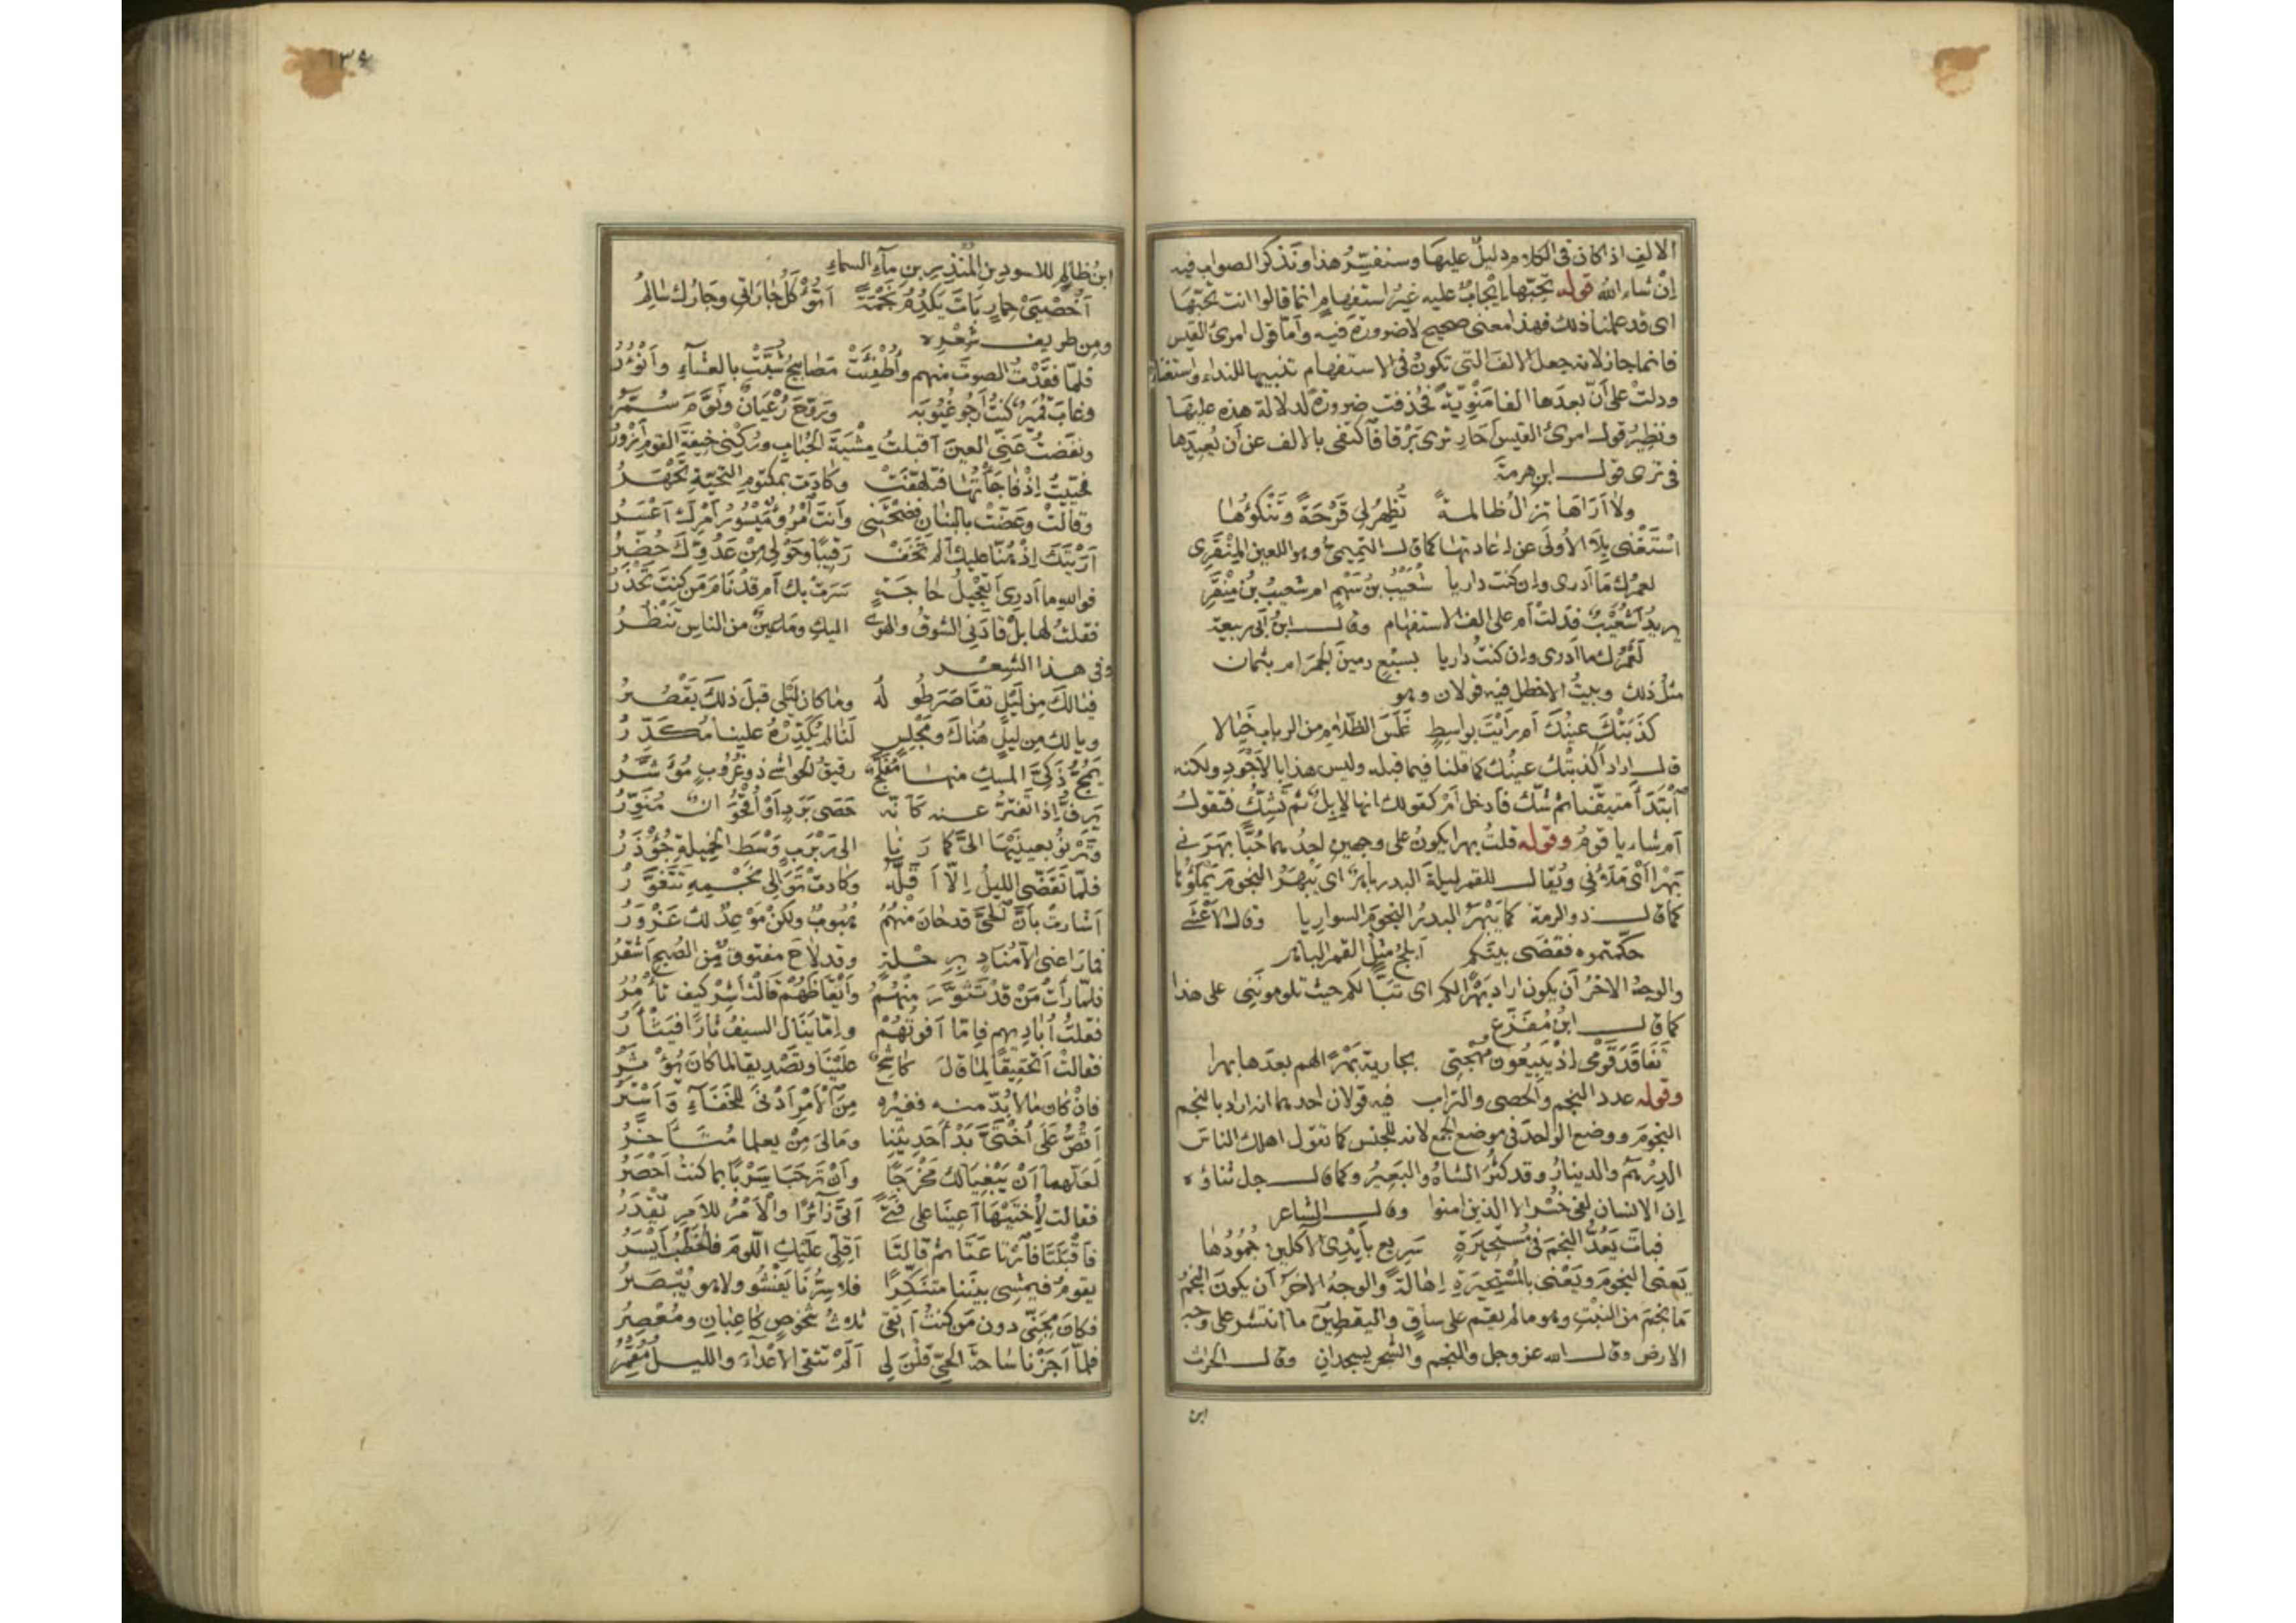 الالف اذا كان فى الكلام دليل عليها وسنفسر هذا ونذكر الصواب فيه
إن شاء الله قوله تحبها إيجاب عليه غير استفهام انما قالوا انت تحبها
اى قد علمنا ذلك فهذا معنى صحيح لا ضرورة فيه وأما قول امرئ القيس
فانما جاز لانه جعل الالف التى تكون فى الاستفهام تنبيها للنداء واستغناء
ودلت على أن بعدها الفا منوية فحذفت ضرورة لدلالة هذه عليها
ونظير قول امرئ القيس أحار ترى برقا فاكتفى بالالف عن أن يعيدها
فى ترى قول ابن هرمة
ولا أراها تزال ظالمة تظهر لى قرحة وتنكؤها
استغنى بلا الأولى عن إعادتها كما قال التميمى وهو اللعين المنقرى
لعمرك ما أدرى وإن كنت داريا شعيب بن سهم ام شعيب بن منقر
يريد أشعيب فدلت أم على الف الاستفهام وقال ابن أبى ربيعة
لعمرك ما أدرى وإن كنت داريا بسبع رمين الجمر ام بثمان
مثل ذلك وبيت الاخطل فيه قولان وهو
كذبتك عينك أم رأيت بواسط غلس الظلام من الرباب خيالا
قال اراد أكذبتك عينك كما قلنا فيما قبله وليس هذا بالاجود ولكنه
ابتدأ متيقنا ثم شك فأدخل أم كقولك انها لإبل ثم تشك فتقول
أم شاء يا قوم وقوله قلت بهرا يكون على وجهين احدهما حبا بهرنى
بهرا أى ملأنى ويقال للقمر ليلة البدر باهر اى يبهر النجوم يملؤها
كما قال ذو الرمة كما يبهر البدر النجوم السواريا وقال الأعشى
حكمتموه فقضى بينكم أبلج مثل القمر الباهر
والوجه الاخر أن يكون اراد بهرا لكم اى تبا لكم حيث تلوموننى على هذا
كما قال ابن مفرغ
تفاقد قومى إذ يبيعون مهجتى بجارية بهرا لهم بعدها بهرا
وقوله عدد النجم والحصى والتراب فيه قولان احدهما انه اراد بالنجم
النجوم ووضع الواحد فى موضع الجمع لانه للجنس كما تقول اهلك الناس
الدرهم والدينار وقد كثر الشاة والبعير وكما قال جل ثناؤه
إن الانسان لفى خسر الا الذين امنوا وقال الشاعر
فبات يعد النجم فى مستحيرة سريع بأيدى الآكلين جمودها
يعنى النجوم ويعنى بالمستحيرة إهالة والوجه الاخر أن يكون النجم
ما نجم من النبت وهو ما لم يقم على ساق واليقطين ما انتشر على وجه
الارض وقال الله عز وجل والنجم والشجر يسجدان وقال الحرث
ابن
١٣٤
ابن ظالم للاسود بن المنذر بن ماء السماء
أخصيى حمار بات يكدم نجمة أتؤكل جاراتى وجارك سالم
ومن طريف شعره
فلما فقدت الصوت منهم وأطفئت مصابيح شبت بالعشاء وأنؤر
وغاب قمير كنت أرجو غيوبه وروح رعيان ونوم سمر
ونفضت عنى العين أقبلت مشية الحباب وركنى خيفة القوم أزور
فحييت إذ فاجأتها فتلهفت وكادت بمكتوم التحية تجهر
وقالت وعضت بالبنان فضحتنى وأنت امرؤ ميسور أمرك أعسر
أريتك إذ هنا عليك ألم تخف رقيبا وحولى من عدوك حضر
فوالله ما أدرى أتعجيل حاجة سرت بك أم قد نام من كنت تحذر
فقلت لها بل قادنى الشوق والهوى اليك وما عين من الناس تنظر
وفى هذا الشعر
فيا لك من ليل تقاصر طوله وما كان ليلى قبل ذلك يقصر
ويا لك من ليل هناك ومجلس لنا لم يكدره علينا مكدر
يمج ذكى المسك منها مفلج رقيق الحواشى ذو غروب مؤشر
يرف إذا تفتر عنه كأنه حصى برد أو أقحوان منور
وترنو بعينيها الى كما رنا الى ربرب وسط الخميلة جؤذر
فلما تقضى الليل إلا أقله وكادت توالى نجمه تتغور
أشارت بأن الحى قد حان منهم هبوب ولكن موعد لك عزور
فما راعنى الا مناد برحلة وقد لاح مفتوق من الصبح أشقر
فلما رأت من قد تثور منهم وأيقاظهم قالت أشر كيف تأمر
فقلت أباديهم فإما أفوتهم وإما ينال السيف ثارا فيثأر
فقالت أتحقيقا لما قال كاشح علينا وتصديقا لما كان يؤثر
فان كان ما لا بد منه فغيره من الأمر أدنى للخفاء وأستر
أقص على أختى بدء حديثنا ومالى من يعلما متأخر
لعلهما أن يبغيا لك مخرجا وأن ترحبا سربا بما كنت أحصر
فقالت لأختيها أعينا على فتى أتى زائرا والأمر للأمر يقدر
فأقبلتا فارتاعتا ثم قالتا أقلى عليك اللوم فالخطب أيسر
يقوم فيمشى بيننا متنكرا فلا سرنا يفشو ولا هو يبصر
فكان مجنى دون من كنت أتقى ثلاث شخوص كاعبان ومعصر
فلما أجزنا ساحة الحى قلن لى ألم تتقى الأعداء والليل مقمر